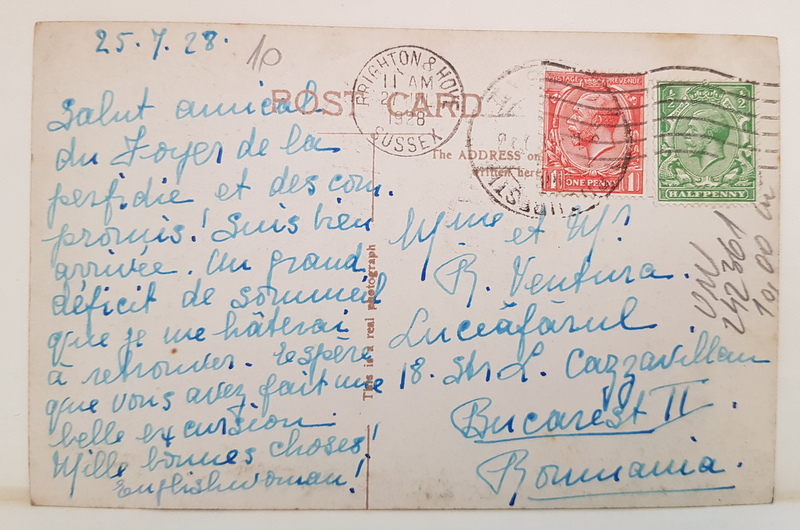 25.7.28.
10
POST CARD
BRIGHTON & HOVE
11 AM
1928
SUSSEX
POSTAGE REVENUE
ONE PENNY
HALFPENNY
The ADDRESS on
written here
Salut amical
du Foyer de la
perfidie et des com
promis! Suis bien
arrivée. Un grand
déficit de sommeil
que je me hâterai
à retrouver. J'espère
que vous avez fait une
belle excursion.
Mille bonnes choses!
Englishwoman!
This is a real photograph
Mme et Mr.
R. Ventura.
Luceăfărul
18. Str. L. Cazzavillan
Bucarest II.
Roumania.
242361
10,00